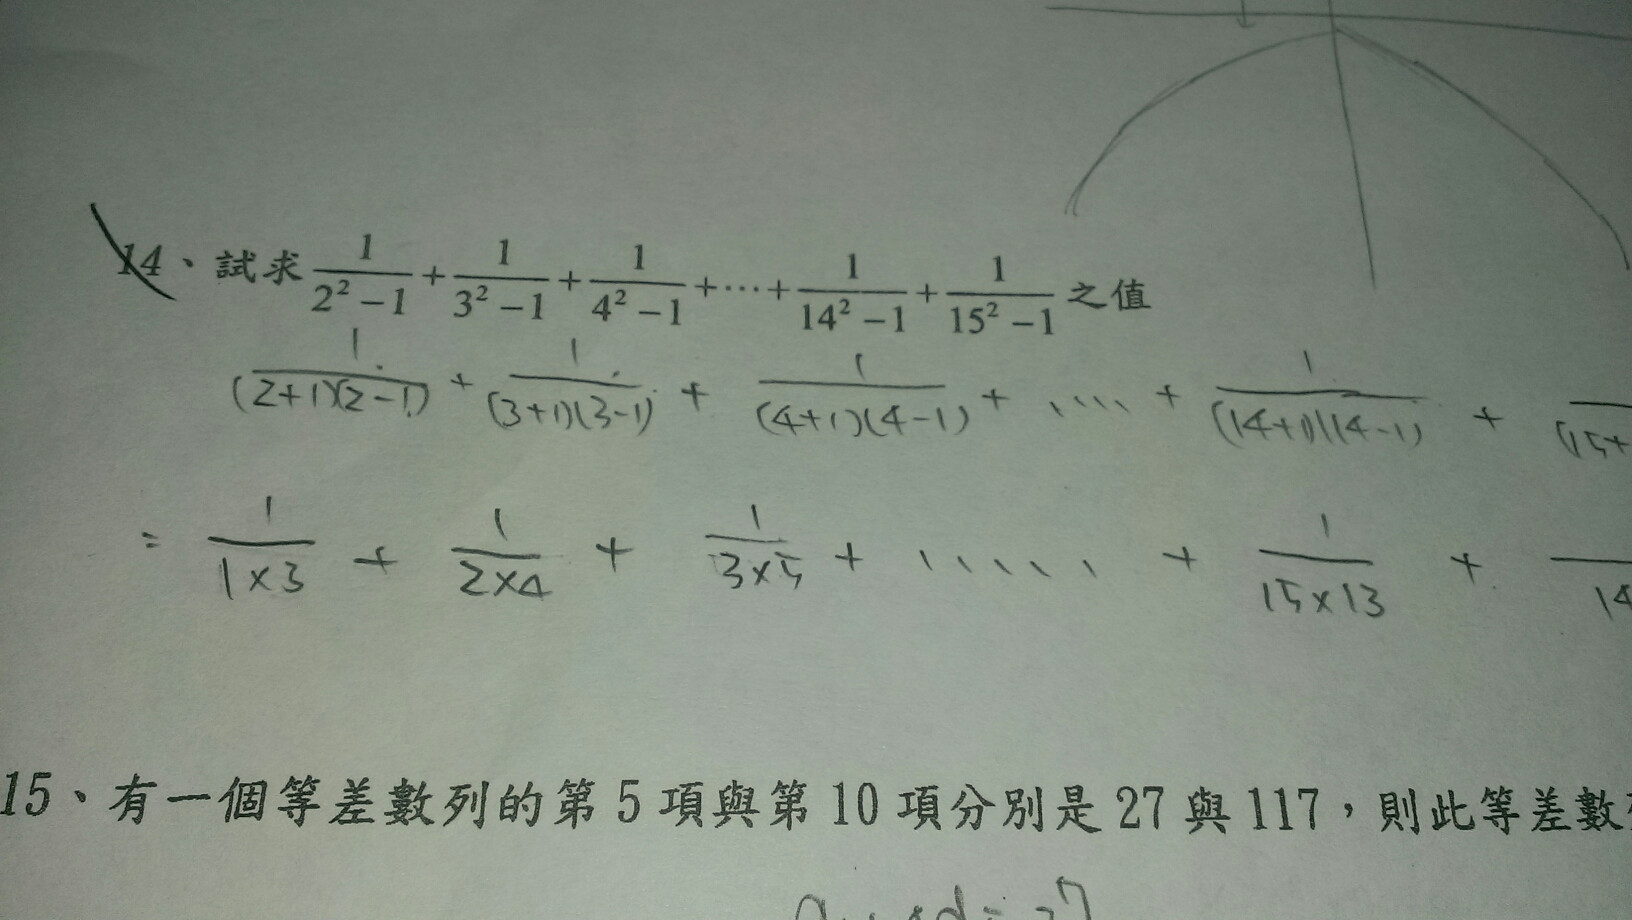 14、試求 1/(2²-1) + 1/(3²-1) + 1/(4²-1) + ⋯ + 1/(14²-1) + 1/(15²-1) 之值
1/((2+1)(2-1)) + 1/((3+1)(3-1)) + 1/((4+1)(4-1)) + ..... + 1/((14+1)(14-1)) + (15+
= 1/(1×3) + 1/(2×4) + 1/(3×5) + ..... + 1/(15×13) + 14
15、有一個等差數列的第 5 項與第 10 項分別是 27 與 117，則此等差數